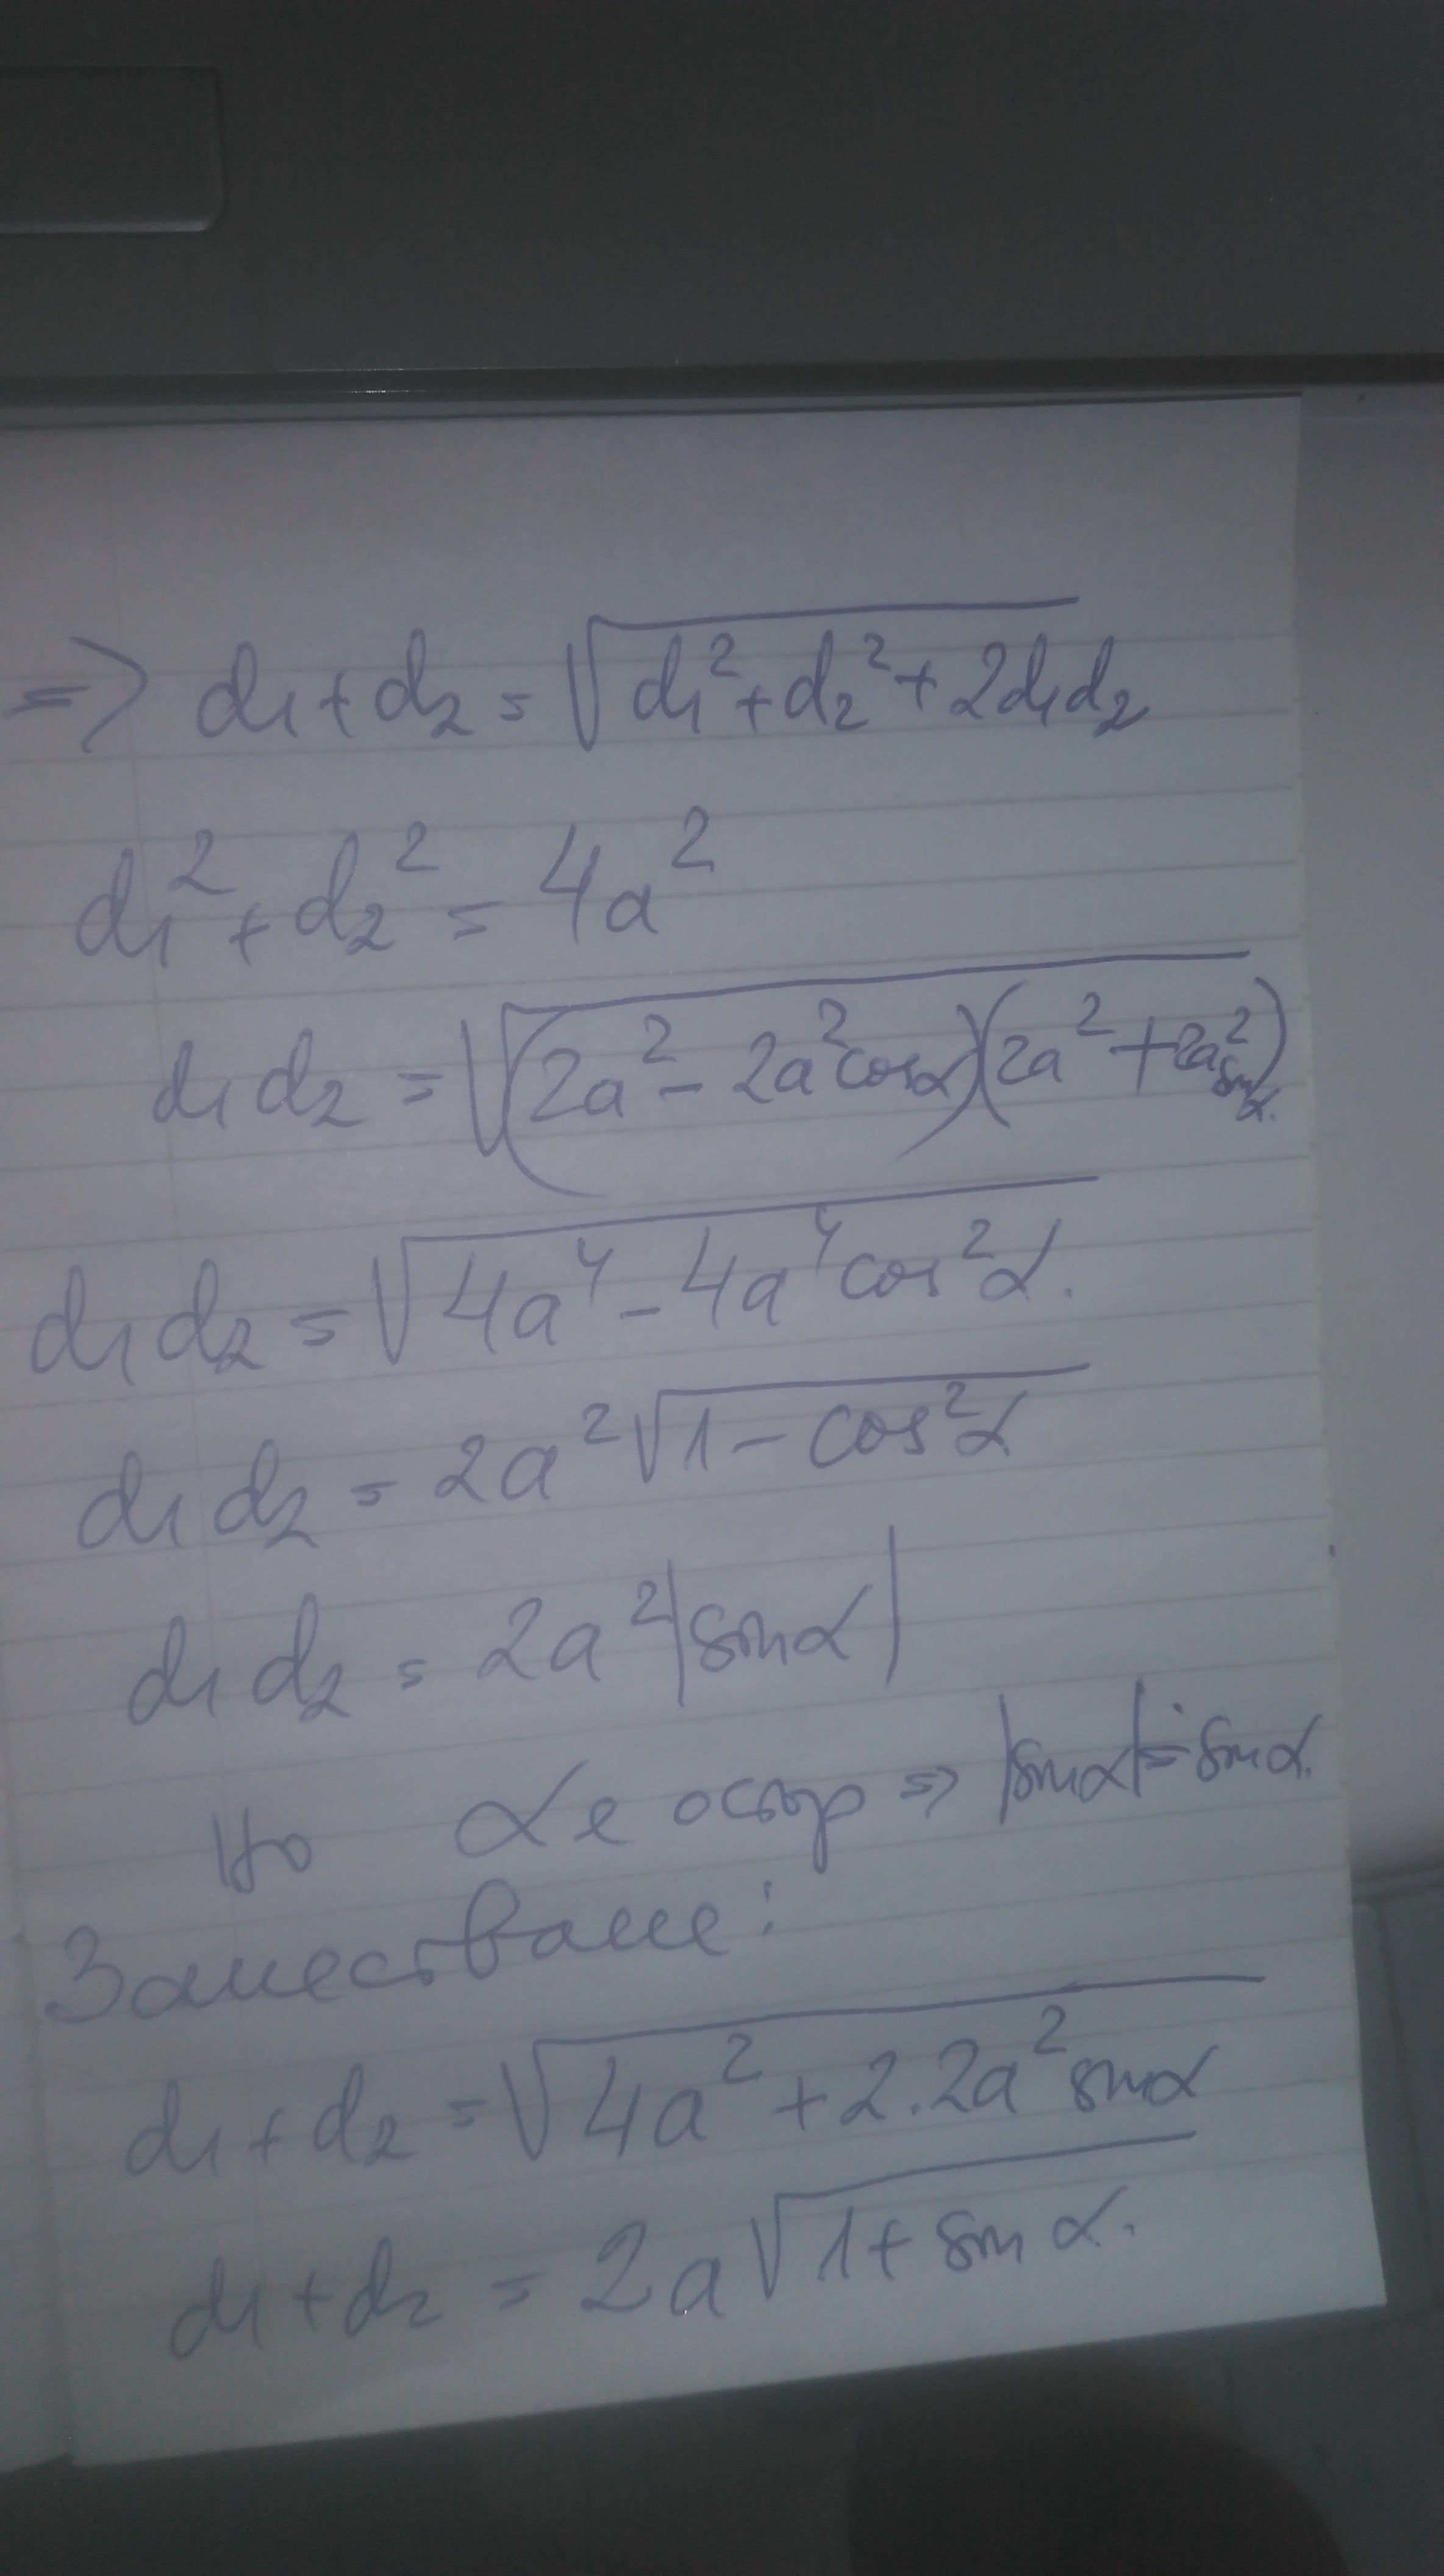 => d₁ + d₂ = √(d₁² + d₂² + 2d₁d₂)
d₁² + d₂² = 4a²
d₁ d₂ = √((2a² - 2a² cosα)(2a² + 2a² sinα))
d₁ d₂ = √(4a⁴ - 4a⁴ cos²α)
d₁ d₂ = 2a² √(1 - cos²α)
d₁ d₂ = 2a² |sinα|
Но α е остър => |sinα| = sinα.
Заместваме:
d₁ + d₂ = √(4a² + 2.2a² sinα)
d₁ + d₂ = 2a √(1 + sin α).